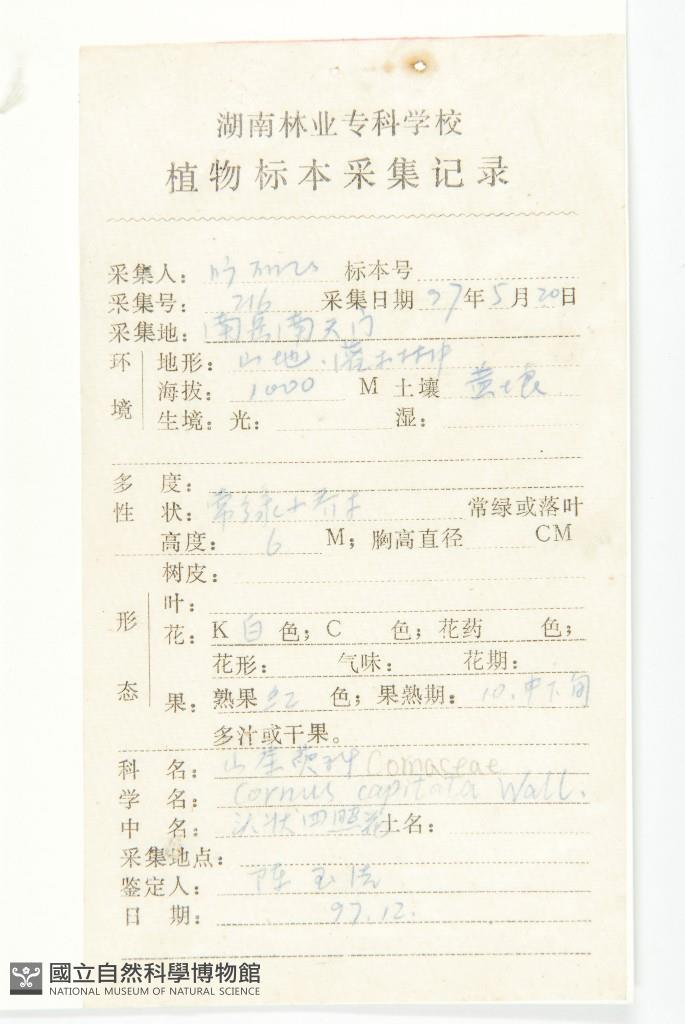 湖南林业专科学校
植物标本采集记录
采集人: 标本号
采集号: 216 采集日期 97年5月20日
采集地: 南岳南天门
环境 地形: 山地.灌木林中
海拔: 1000 M 土壤 黄壤
生境: 光: 湿:
多度:
性状: 常绿小乔木 常绿或落叶
高度: 6 M; 胸高直径 CM
树皮:
形态 叶:
花: K 白 色; C 色; 花药 色;
花形: 气味: 花期:
果: 熟果 红 色; 果熟期: 10.中下旬
多汁或干果。
科名: 山茱萸科 Cornaseae
学名: Cornus capitata Wall.
中名: 头状四照花 土名:
采集地点:
鉴定人: 陈
日期: 97.12.
國立自然科學博物館
NATIONAL MUSEUM OF NATURAL SCIENCE